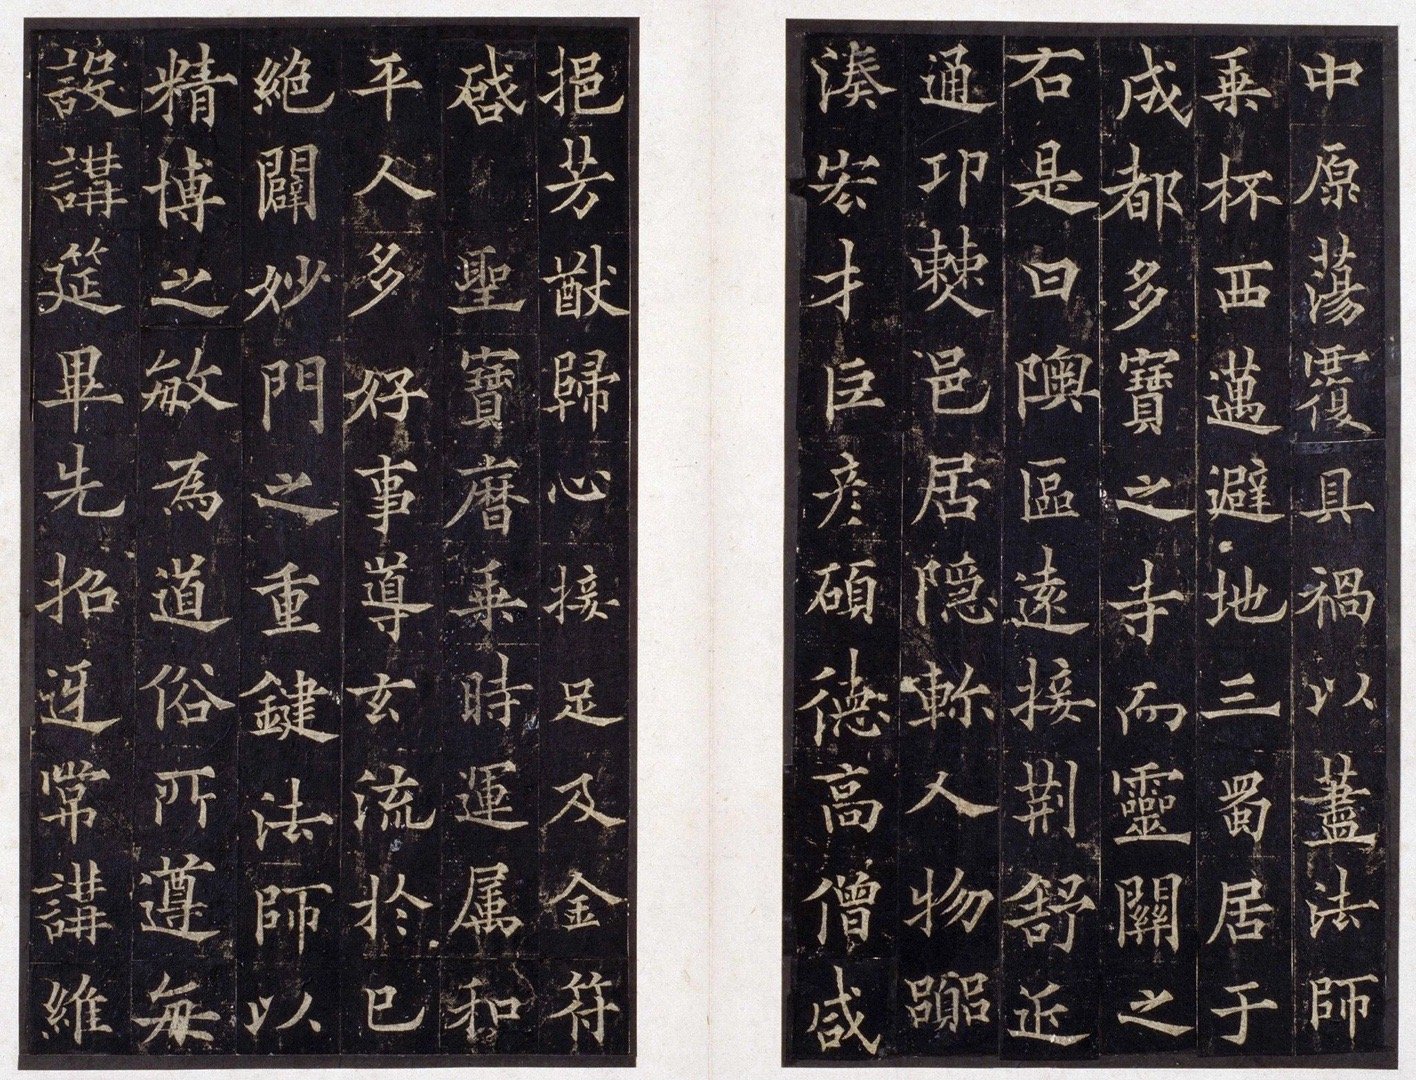 中原蕩覆具禍以藎法師
乗杯西邁避地三蜀居于
成都多寶之寺而靈關之
右是曰隩區遠接荆舒近
通卭僰邑居隠軫人物嚻
湊宏才巨彦碩徳高僧咸
挹芳猷歸心接足及金符
啓 聖寶曆乗時運属和
平人多好事導玄流於已
絶闢妙門之重鍵法師以
精博之敏為道俗所遵每
設講筵畢先招迓常講維